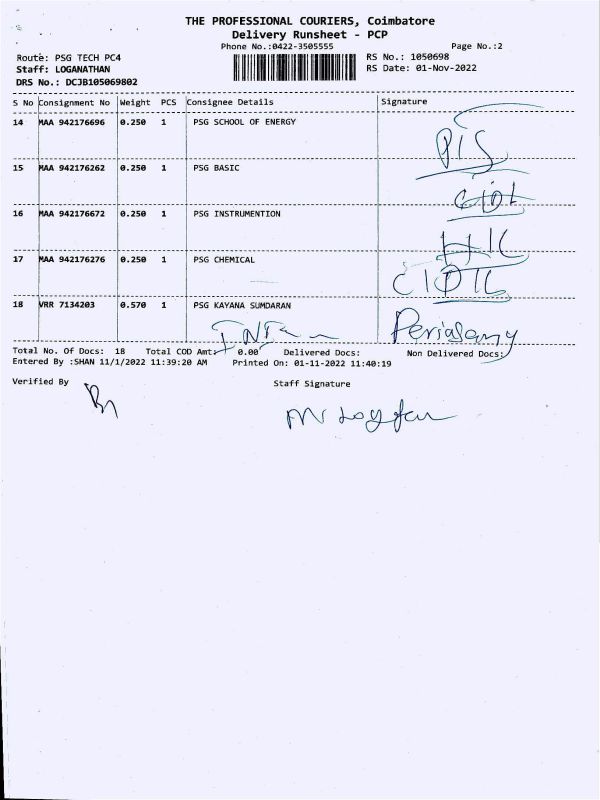 THE PROFESSIONAL COURIERS, Coimbatore
Delivery Runsheet - PCP
Phone No.:0422-3505555 Page No.:2
Route: PSG TECH PC4 RS No.: 1050698
Staff: LOGANATHAN RS Date: 01-Nov-2022
DRS No.: DCJB105069802
S No Consignment No Weight PCS Consignee Details Signature
14 MAA 942176696 0.250 1 PSG SCHOOL OF ENERGY
15 MAA 942176262 0.250 1 PSG BASIC
16 MAA 942176672 0.250 1 PSG INSTRUMENTION
17 MAA 942176276 0.250 1 PSG CHEMICAL
18 VRR 7134203 0.570 1 PSG KAYANA SUMDARAN
Periasamy
Total No. Of Docs: 18 Total COD Amt: 0.00 Delivered Docs: Non Delivered Docs:
Entered By :SHAN 11/1/2022 11:39:20 AM Printed On: 01-11-2022 11:40:19
Verified By Staff Signature